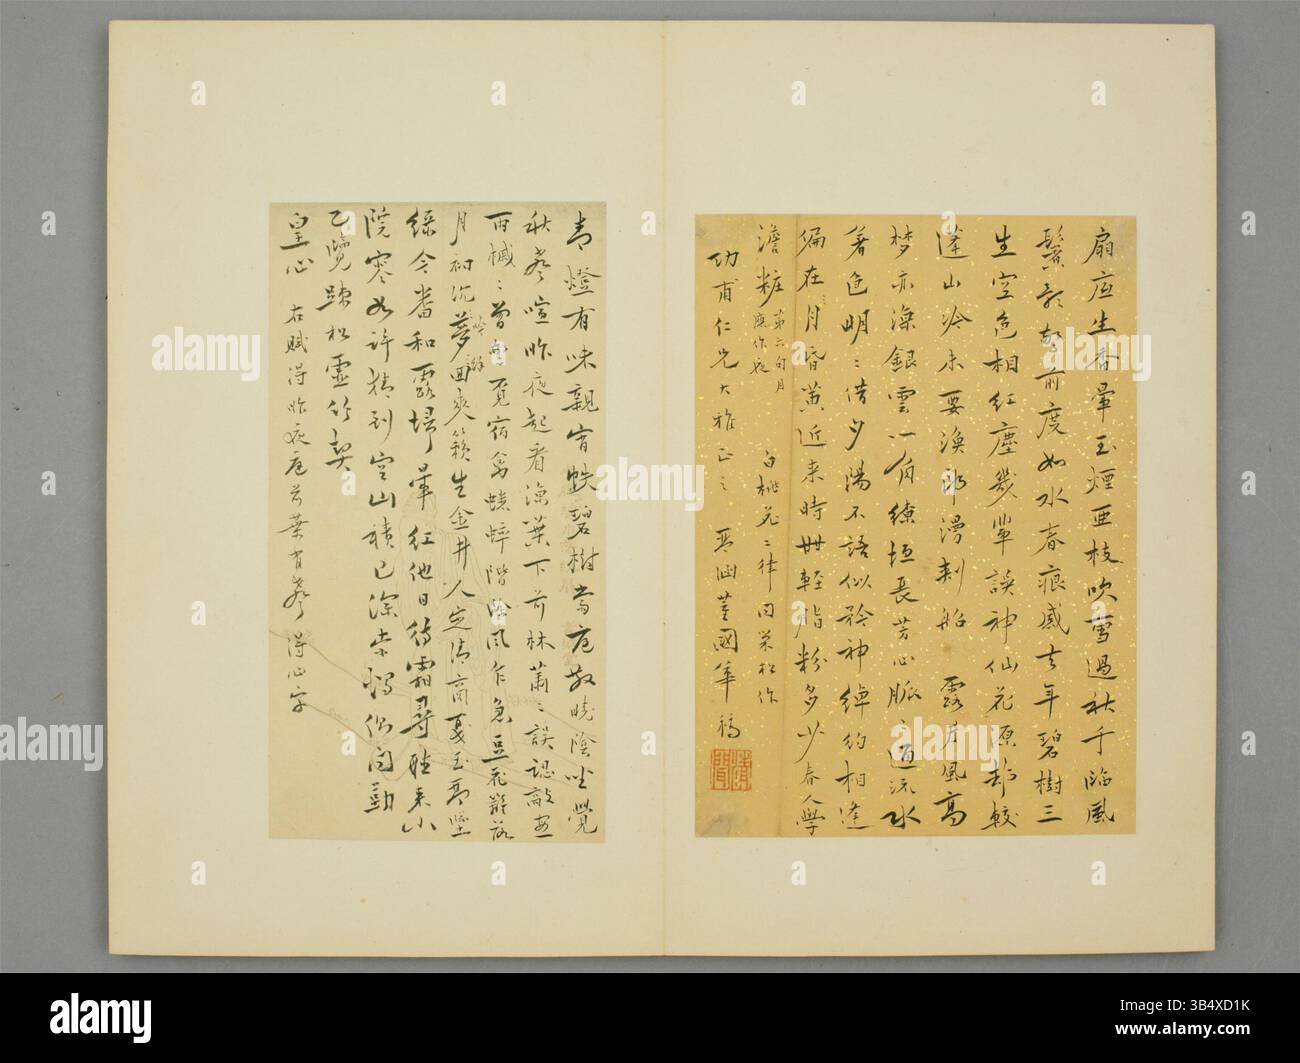 扇底生香暈玉煙亞枝吹雪過秋千臨風
鬢影前度如水春痕感去年碧樹三
生空色相紅塵幾輩誤神仙花源却較
蓬山冷未要漁郎漫刺船 露井風高
夢亦澡銀雲一角繚垣長芳心脈脈通流水
著色明明借夕陽不語似矜神綽約相逢
偏在月昏黃近來時世輕脂粉多少春人學
澹粧 第六句月
應作夜 白桃花二律同 作
功甫仁兄大雅正之 董國華稿
青燈有味親宵 碧樹當庭散曉陰坐覺
秋聲喧昨夜起看涼葉下前林蕭蕭誤認敲
雨槭槭曾 覓宿禽蟋蟀階 風乍急豆花籬落
月初沉
夢回爽籟生金井人定清商戛玉琴墜
綠今番和露掃暈紅他日待霜尋眠來小
院寒如許積到空山積已深
乙覽疎松虛竹契
皇心 右賦得昨夜庭前葉有聲得心字
alamy
Image ID: 3B4XD1K
www.alamy.com